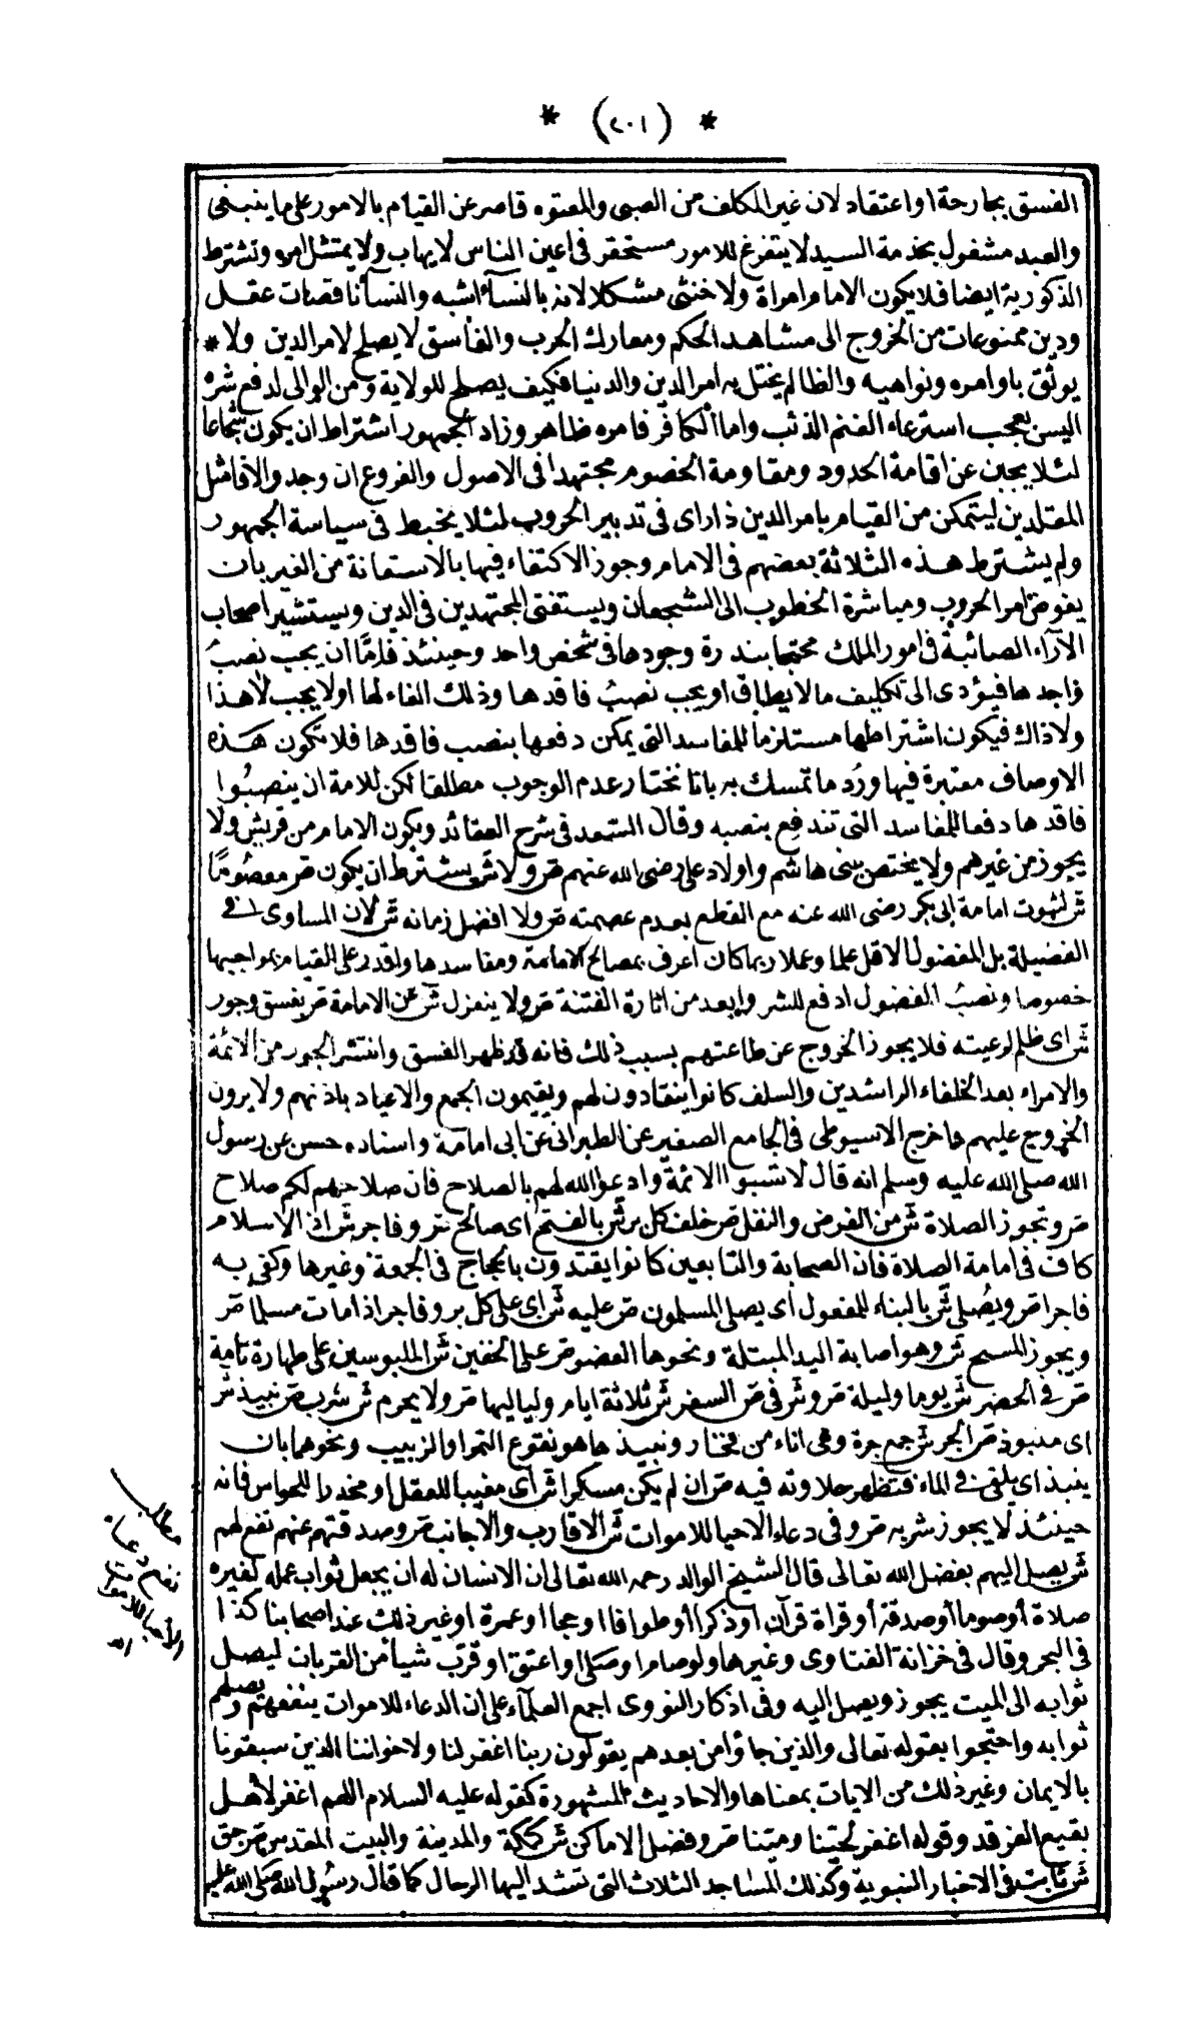 * (٢٠١) *
الفسق بجارحة او اعتقاد لان غير المكلف من الصبى والمعتوه قاصر عن القيام بالامور على ما ينبغى
والعبد مشغول بخدمة السيد لا يتفرغ للامور مستحقر فى اعين الناس لا يهاب ولا يمتثل امره وتشترط
الذكورية ايضا فلا يكون الامام امراة ولا خنثى مشكلا لانه بالنسآء اشبه والنسآ ناقصات عقل
ودين ممنوعات من الخروج الى مشاهد الحكم ومعارك الحرب والفاسق لا يصلح لامر الدين ولا *
يوثق باوامره ونواهيه والظالم يختل به امر الدين والدنيا فكيف يصلح للولاية ومن الوالى لدفع شره
اليس بعجب استرعاء الغنم الذئب واما الكافر فامره ظاهر وزاد الجمهور اشتراط ان يكون شجاعا
لئلا يجبن عن اقامة الحدود ومقاومة الخصوم مجتهدا فى الاصول والفروع ان وجد والا فامثل
المقلدين ليتمكن من القيام بامر الدين ذا راى فى تدبير الحروب لئلا يخبط فى سياسة الجمهور
ولم يشترط هذه الثلاثة بعضهم فى الامام وجوز الاكتفاء فيها بالاستعانة من الغير بان
يفوض امر الحروب ومباشرة الخطوب الى الشجعان ويستفتى المجتهدين فى الدين ويستشير اصحاب
الآراء الصائبة فى امور الملك محتجا بندرة وجودها فى شخص واحد وحينئذ فامّا ان يجب نصبُ
واجدها فيؤدى الى تكليف ما لا يطاق او يجب نصبُ فاقدها وذلك الغاء لها او لا يجب لا هذا
ولا ذاك فيكون اشتراطها مستلزما للمفاسد التى يمكن دفعها بنصب فاقدها فلا تكون هذه
الاوصاف معتبرة فيها ورُد ما تمسك به بانا نختار عدم الوجوب مطلقا لكن للامة ان ينصبُوا
فاقدها دفعا للمفاسد التى تندفع بنصبه وقال السعد فى شرح العقائد ويكون الامام من قريش ولا
يجوز من غيرهم ولا يختص ببنى هاشم واولاد على رضى الله عنهم ص ولا ش يشترط ان يكون ص معصُومًا
ش لثبوت امامة ابى بكر رضى الله عنه مع القطع بعدم عصمته ص ولا افضل زمانه ش لان المساوى فى
الفضيلة بل المفضول الاقل علما وعملا ربما كان اعرف بمصالح الامامة ومفاسدها واقدر على القيام بمواجبها
خصوصا ونصبُ المفضول ادفع للشر وابعد من اثارة الفتنة ص ولا ينعزل ش عن الامامة ص بفسق وجور
ش اى ظلم لرعيته فلا يجوز الخروج عن طاعتهم بسبب ذلك فانه قد ظهر الفسق وانتشر الجور من الائمة
والامراء بعد الخلفاء الراشدين والسلف كانوا ينقادون لهم ويقيمون الجمع والاعياد باذنهم ولا يرون
الخروج عليهم واخرج الاسيوطى فى الجامع الصغير عن الطبرانى عن ابى امامة واسناده حسن عن رسول
الله صلى الله عليه وسلم انه قال لا تسبوا الائمة وادعوا الله لهم بالصلاح فان صلاحهم لكم صلاح
ص وتجوز الصلاة ش من الفرض والنفل ص خلف كل بر ش بالفتح اى صالح ص وفاجر ش اذ الاسلام
كاف فى امامة الصلاة فان الصحابة والتابعين كانوا يقتدون بالحجاج فى الجمعة وغيرها وكفى به
فاجرا ص ويُصلى ش بالبناء للمفعول اى يصلى المسلمون ص عليه ش اى على كل بر وفاجر اذا مات مسلما ص
ويجوز المسح ش وهو اصابة اليد المبتلة ونحوها العضو ص على الخفين ش الملبوسين على طهارة تامة
ص فى الحضر ش يوما وليلة ص و ش فى ص السفر ش ثلاثة ايام ولياليها ص ولا يحرم ش شرب ص نبيذ ش
اى منبوذ ص الجر ش جمع جرة وهى اناء من فخار ونبيذها هو نقوع التمر او الزبيب ونحوهما بان
ينبذ اى يلقى فى الماء فتظهر حلاوته فيه ص ان لم يكن مسكرا ش اى مغيبا للعقل او مخدرا للحواس فانه
حينئذ لا يجوز شربه ص وفى دعاء الاحيا للاموات ش الاقارب والاجانب ص وصدقتهم عنهم نفع لهم
ش يصل اليهم بفضل الله تعالى قال الشيخ الوالد رحمه الله تعالى ان الانسان له ان يجعل ثواب عمله لغيره
صلاة أو صوما أو صدقة أو قراة قرآن او ذكرا أو طوافا او حجا او عمرة او غير ذلك عند اصحابنا كذا
فى البحر وقال فى خزانة الفتاوى وغيرها ولو صام او صلى او اعتق او قرّب شيأ من القربات ليصل
ثوابه الى الميت يجوز ويصل اليه وفى اذكار النووى اجمع العلمآء على ان الدعاء للاموات ينفعهم ويصلهم
ثوابه واحتجوا بقوله تعالى والذين جاؤا من بعدهم يقولون ربنا اغفر لنا ولاخواننا الذين سبقونا
بالايمان وغير ذلك من الايات بمعناها والاحاديث المشهورة كقوله عليه السلام اللهم اغفر لاهل
بقيع الغرقد وقوله اغفر لحيّنا وميّتنا ص وفضل الاماكن ش كمكة والمدينة والبيت المقدس ص حق
ش ثابت فى الاخبار النبوية وكذلك المساجد الثلاث التى تشد اليها الرحال كما قال رسول الله صلى الله عليه
مطلب
نفع دعاء
الأحيا للاموات
اه